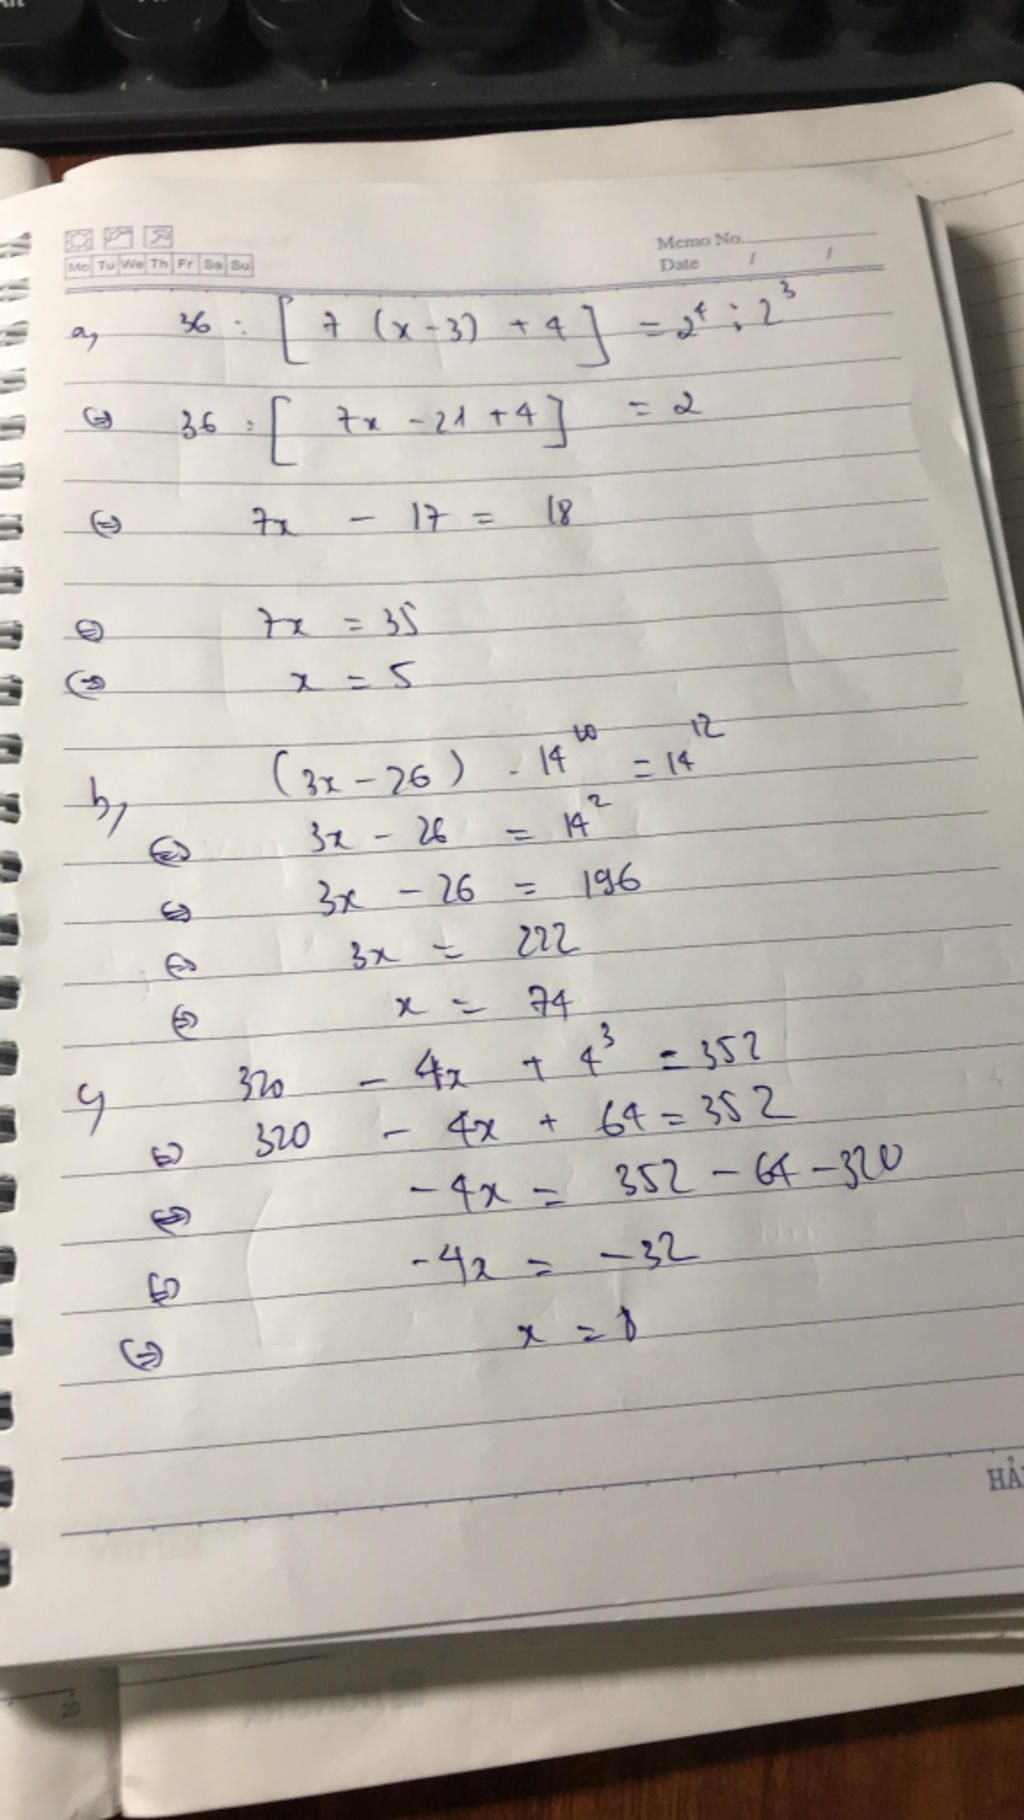 Mo Tu We Th Fr Sa Su
Memo No.
Date / /
a, 36 : [ 7 (x-3) + 4 ] = 2⁴ : 2³
⇔ 36 : [ 7x - 21 + 4 ] = 2
⇔ 7x - 17 = 18
⇔ 7x = 35
⇔ x = 5
b, (3x - 26) . 14¹⁰ = 14¹²
⇔ 3x - 26 = 14²
⇔ 3x - 26 = 196
⇔ 3x = 222
⇔ x = 74
c, 320 - 4x + 4³ = 352
⇔ 320 - 4x + 64 = 352
⇔ -4x = 352 - 64 - 320
⇔ -4x = -32
⇔ x = 8
HẢ
20